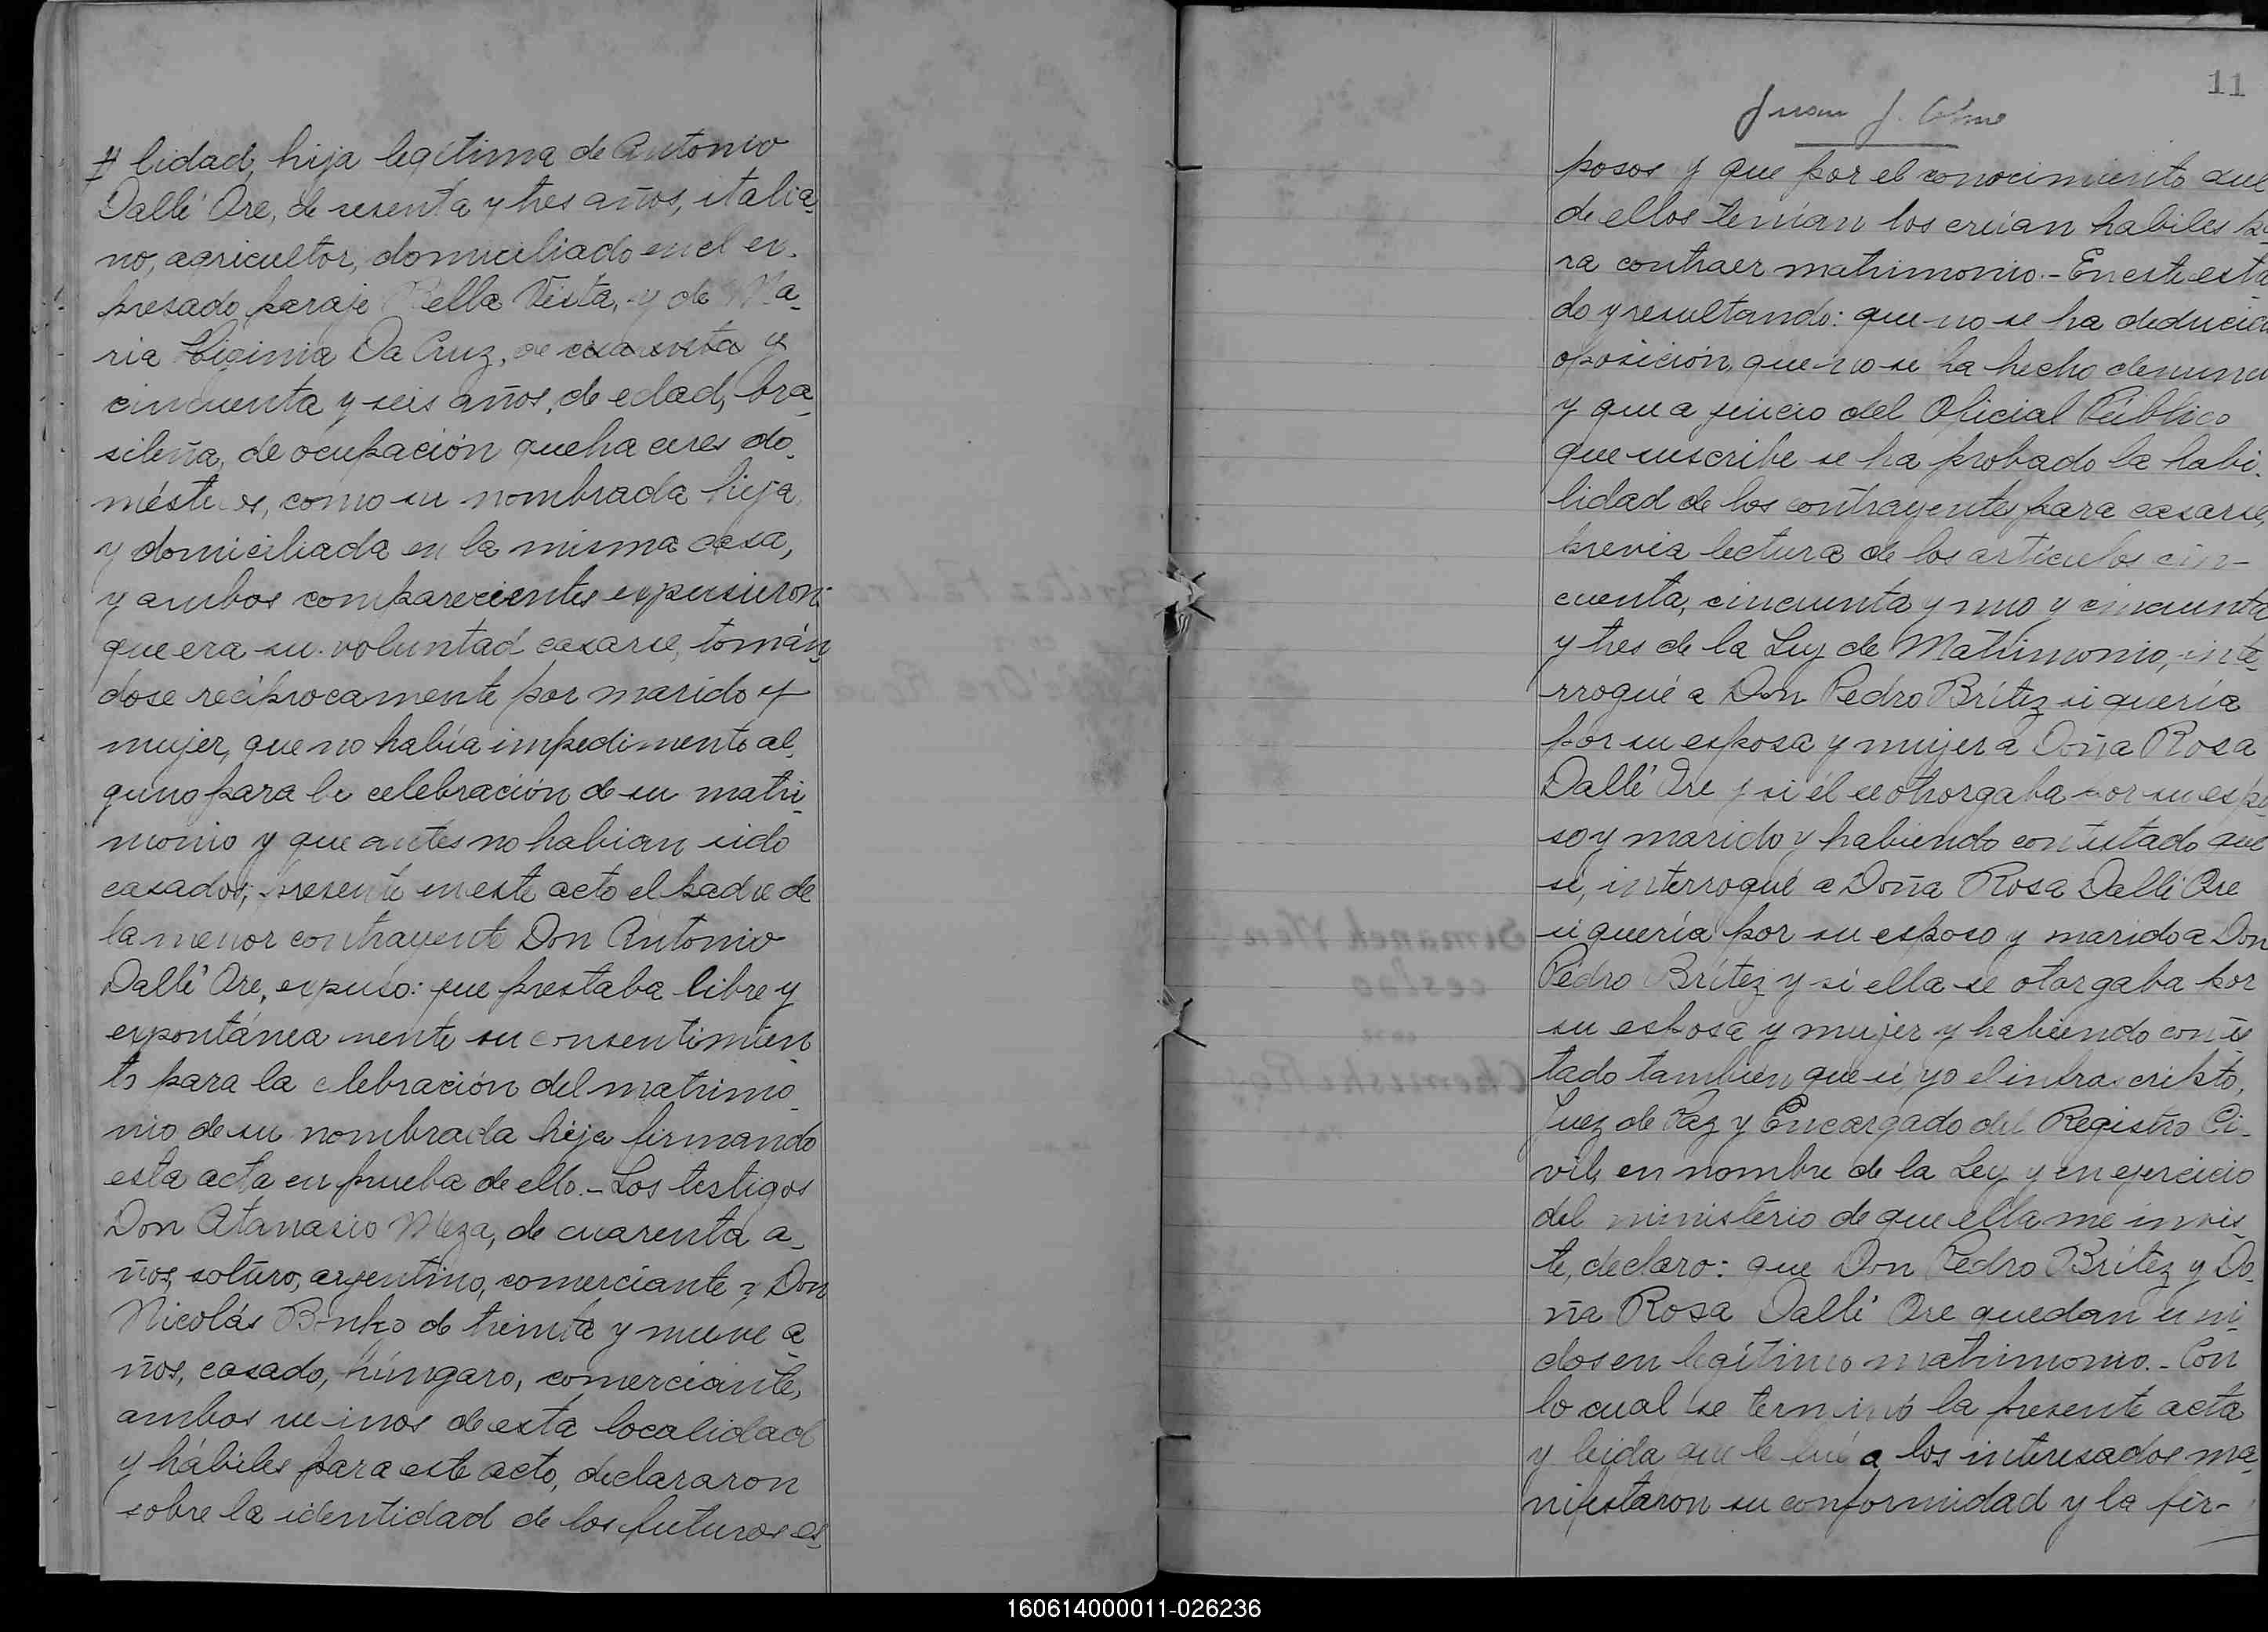 lidad, hija legítima de Antonio
Dalle' Ore, de sesenta y tres años, italia-
no, agricultor, domiciliado en el ex-
presado paraje Bella Vista, y de Ma-
ria Higinia Da Cruz, de cuarenta y
cincuenta y seis años, de edad, bra-
sileña, de ocupación quehaceres do-
mésticos, como su nombrada hija
y domiciliada en la misma casa,
y ambos comparecientes expusieron:
que era su voluntad casarse, tomán-
dose recíprocamente por marido y
mujer, que no había impedimento al-
guno para la celebración de su matri-
monio y que antes no habian sido
casados; presente en este acto el padre de
la menor contrayente Don Antonio
Dalle' Ore, expuso: que prestaba libre y
expontánea mente su consentimien-
to para la celebración del matrimo-
nio de su nombrada hija firmando
esta acta en prueba de ello.- Los testigos
Don Atanasio Meza, de cuarenta a-
ños, soltero, argentino, comerciante y Don
Nicolás de treinta y nueve a-
ños, casado, húngaro, comerciante,
ambos vecinos de esta localidad
y hábiles para este acto, declararon
sobre la identidad de los futuros es-
11
Juan J.
posos y que por el conocimiento que
de ellos tenían los creían habiles pa
ra contraer matrimonio.- En este esta
do y resultando: que no se ha deducido
oposición, que no se ha hecho denuncia
y que a juicio del Oficial Público
que suscribe se ha probado la habi-
lidad de los contrayentes para casarse
previa lectura de los artículos cin-
cuenta, cincuenta y uno y cincuenta
y tres de la Ley de Matrimonio, inte-
rrogué a Don Pedro Brítez si quería
por su esposa y mujer a Doña Rosa
Dalle' Ore y si él se otrorgaba por su espo
so y marido y habiendo contestado que
sí, interrogué a Doña Rosa Dalle' Ore
si quería por su esposo y marido a Don
Pedro Brítez y si ella se otorgaba por
su esposa y mujer y habiendo contes
tado también que sí yo el infrascripto,
Juez de Paz y Encargado del Registro Ci-
vil, en nombre de la Ley y en ejercicio
del ministerio de que ella me invis-
te, declaro: que Don Pedro Brítez y Do-
ña Rosa Dalle' Ore quedan uni-
dos en legítimo matrimonio.- Con
lo cual se terminó la presente acta
y leida que le fué a los interesados ma-
nifestaron su conformidad y la fir-
160614000011-026236